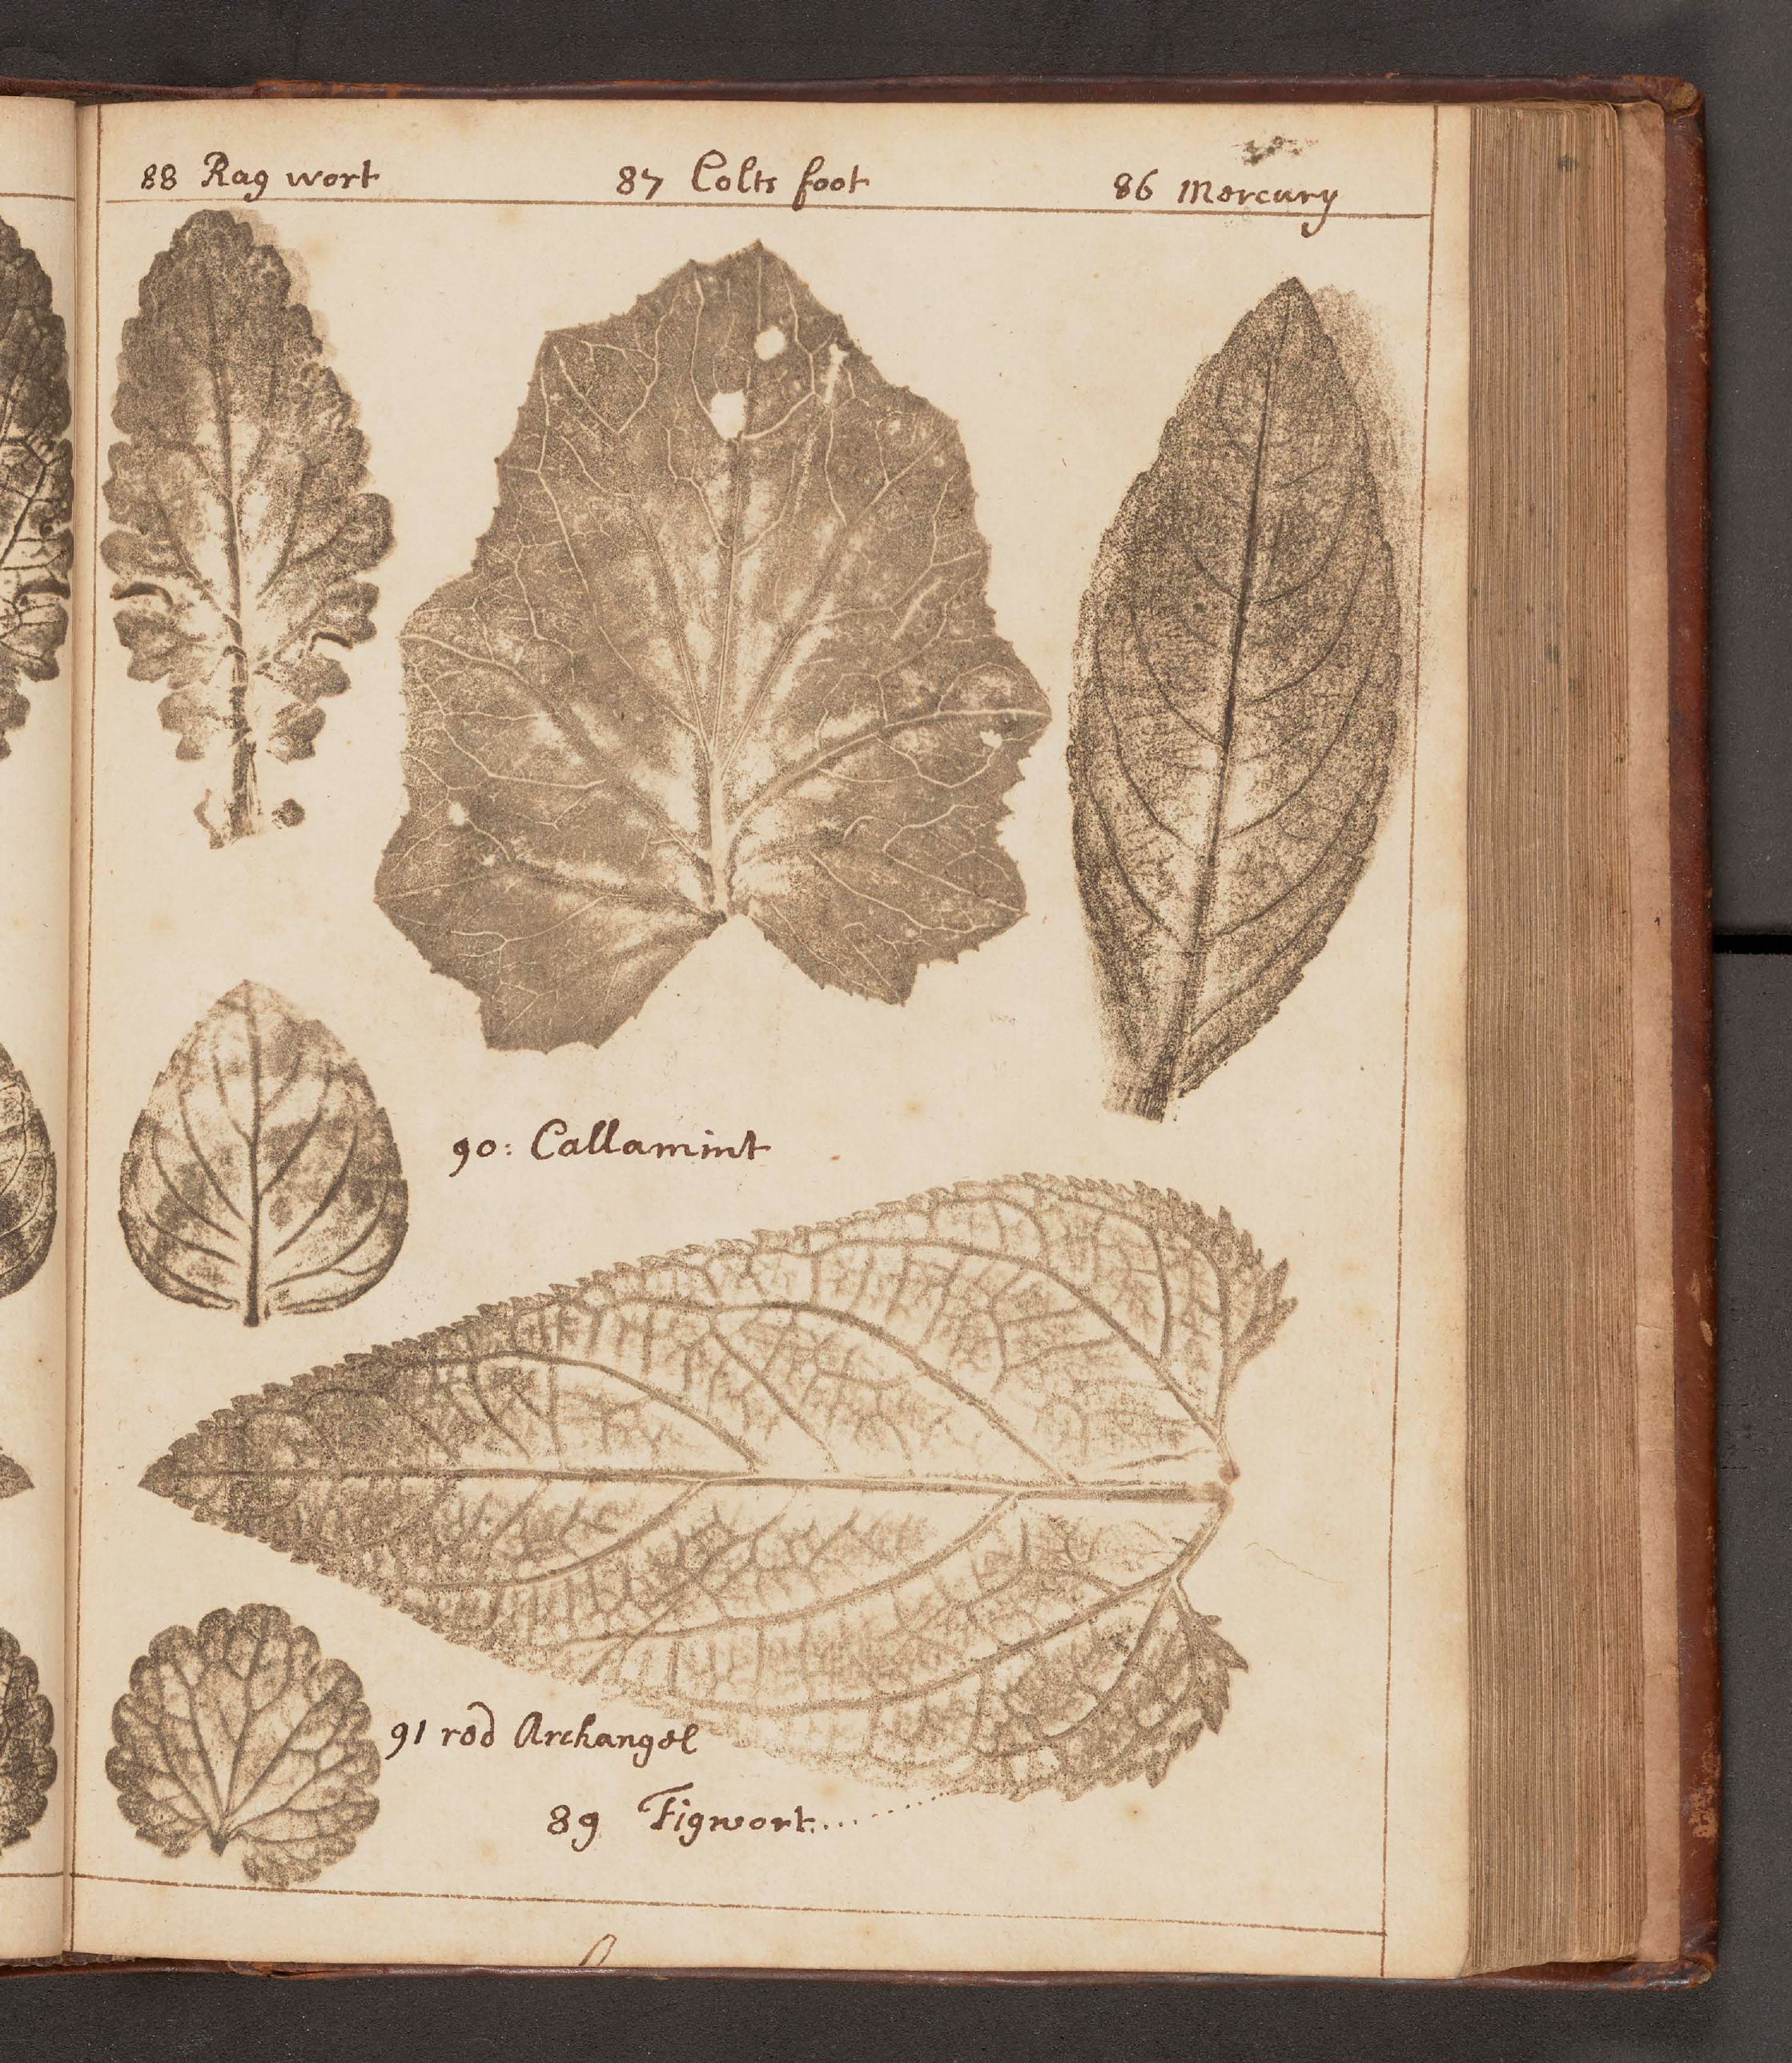 88 Rag wort
87 Colts foot
86 Mercury
90: Callamint
91 red Archangel
89 Figwort.........